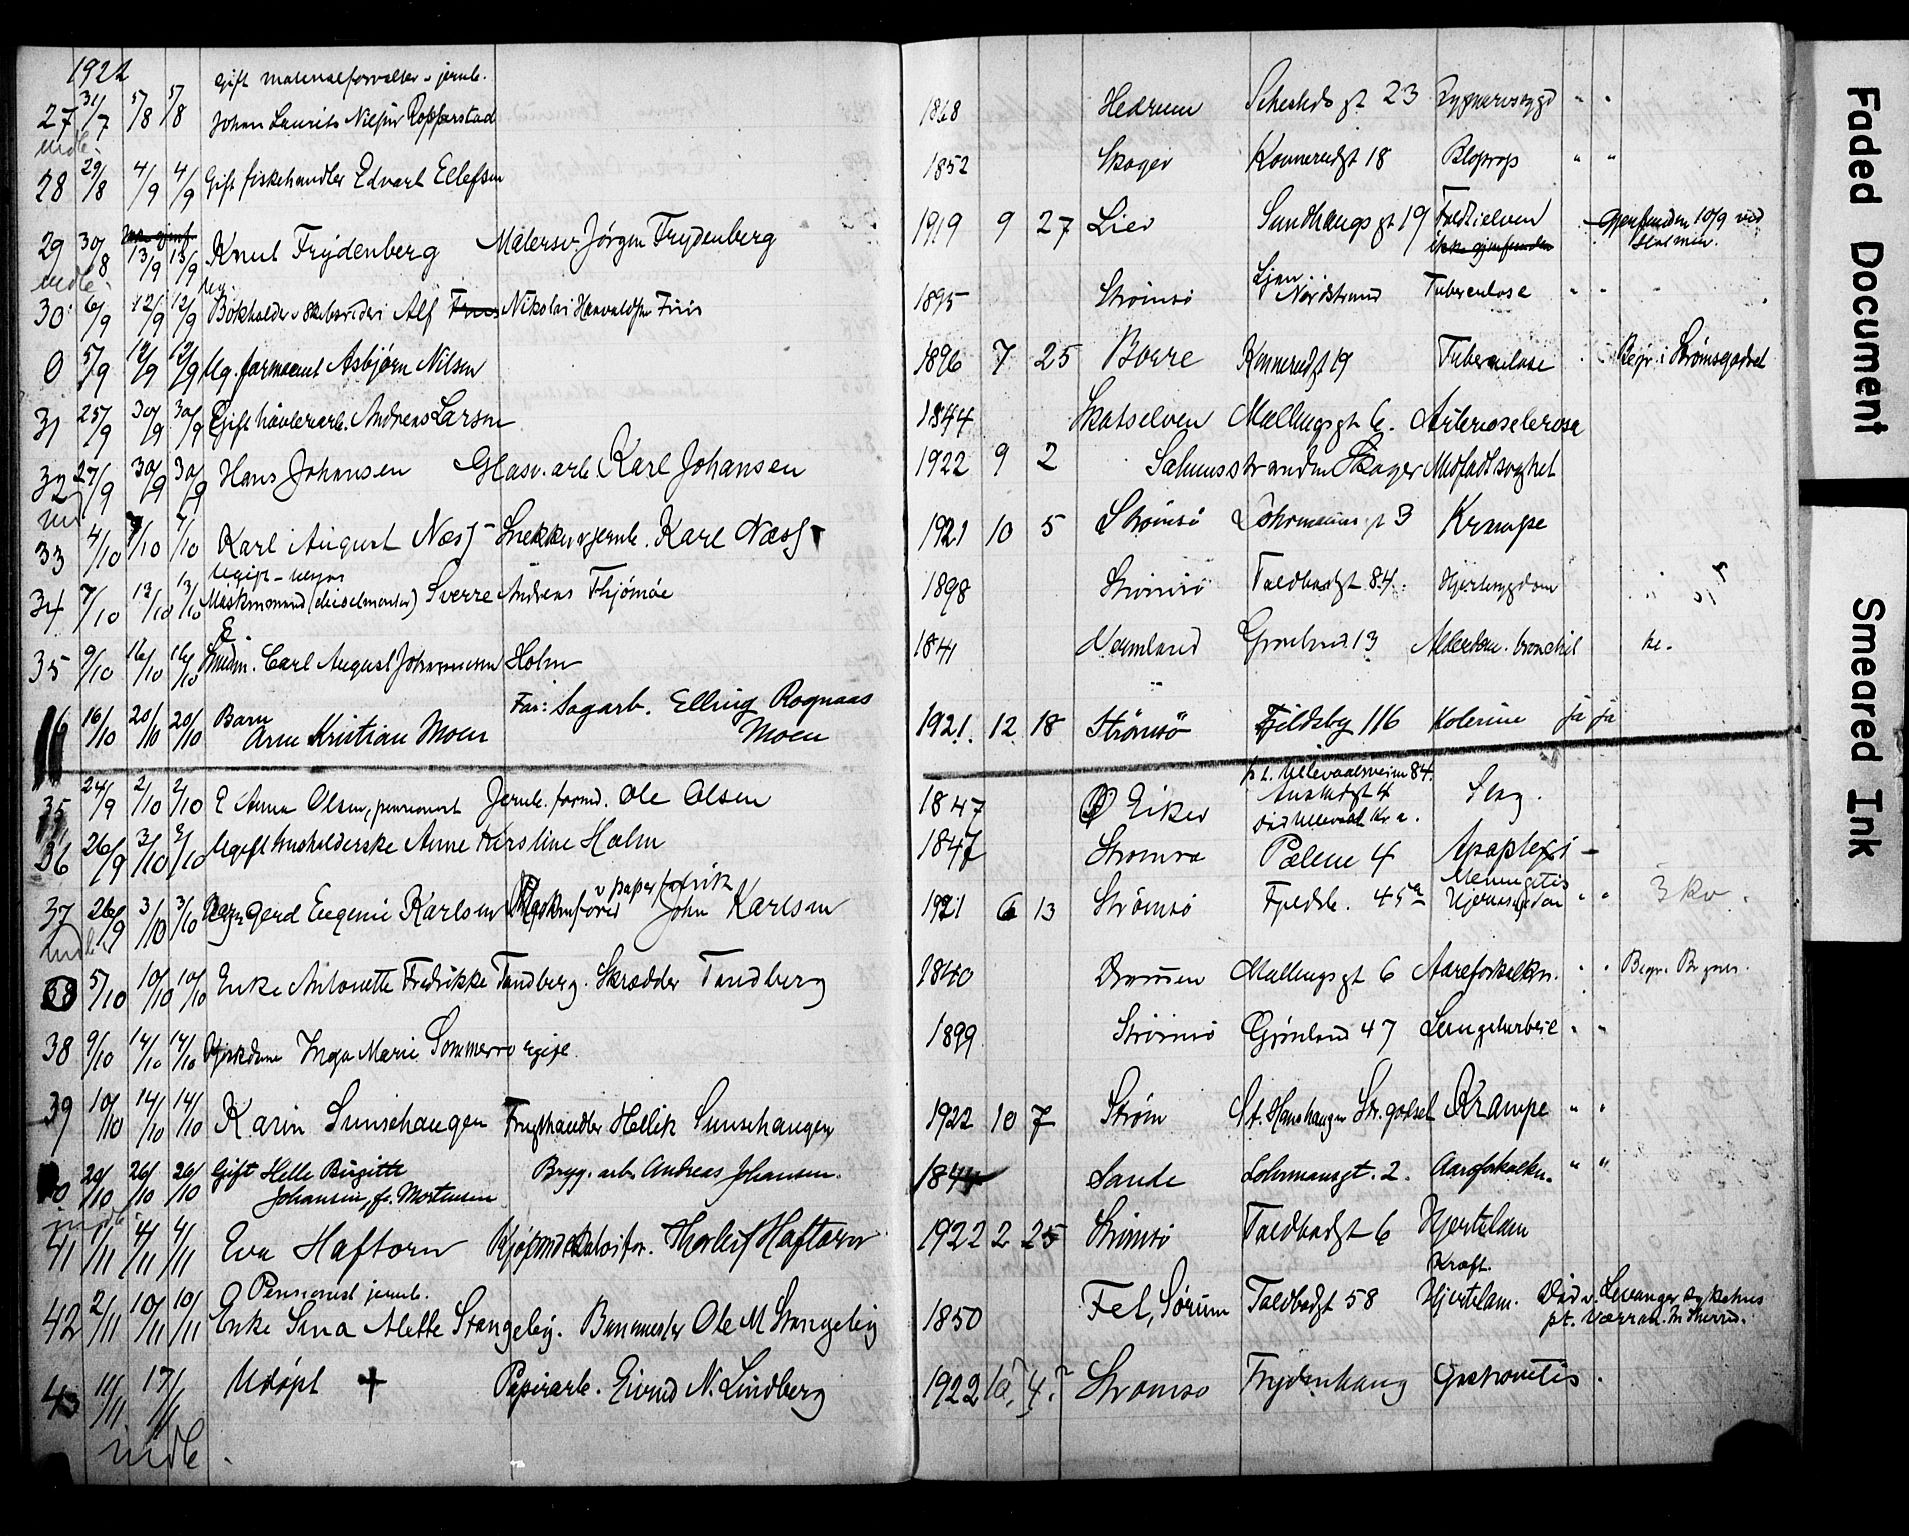 1922
27 31/7 5/8 5/8 Gift materialforvalter v jernb.
Johan Laurits Nilsen Ropperstad 1868 Hedrum Schesteds gt 23 Rygmarvsygd " "
indb.
28 29/8 4/9 4/9 Gift fiskehandler Edvart Ellefsen 1852 Skoger Konnerudgt 18 Bloprop " "
29 30/8 13/9 13/9 Knut Frydenberg Malersv Jørgen Frydenberg 1919 9 27 Lier Sundhaugs gt 19 Faldt i elven Gjenfunden 10/9 ved
ikke gjenfunden Holmen.
indb.
30 6/9 12/9 12/9 Ug.
Bokholder v Skibsrederi Alf Friis Nikolai Haavaldsen Friis 1895 Strømsø Ljan Nordstrand Tuberculose " "
0 5/9 12/9 12/9 Ug. farmaceut Asbjørn Nilsen 1896 7 25 Borre Konnerudgt 19 Tuberculose Begr. i Strømsgodset
31 25/9 30/9 30/9 Gift høvleriarb. Andreas Larsen 1844 Skotselven Mallings gt 6. Arteriosclerose
32 27/9 30/9 30/9 Hans Johansen Glasv. arb. Karl Johansen 1922 9 2 Solumsstranden Skoger Medfødt svaghet
33 4/10 7/10 7/10 Karl August Næss Snekker v jernb. Karl Næss 1921 10 5 Strømsø Lohrmanns gt 3 Krampe
34 7/10 13/10 13/10 Ugift
Maskinmand (dieselmotor) Sverre Andreas Thjømøe 1898 Strømsø Toldbodgt 84. Hjertesygdom
35 9/10 16/10 16/10 E.
Snedm. Carl August Johannessen Holm 1841 Vermland Grønland 13 Alderdom. bronchit
16/10 20/10 20/10 Barn
Arne Kristian Moen Far: Sagarb. Elling Rognaas
Moen 1921. 12 18 Strømsø Fjeldsby 116 Kolerine ja ja
35 24/9 2/10 2/10 E Anna Olsen, pensionist Jernb. formd. Ole Olsen 1847 Ø Eiker p.t. Ullevaalsveien 84.
Austadgt 4
Død Ullevaal Kr a. Slag.
36 26/9 3/10 3/10 Ugift husholderske Anne Kirstine Holm 1847 Strømsø Pælene 4 Apoplexi –
37 26/9 3/10 3/10 Barn Gerd Eugenie Karlsen Maskinfører v papirfabrik John Karlsen 1921 6 13 Strømsø Fjeldsb. 45a Meningitis
Hjernesygdom " " 3 kv.
indb.
38 5/10 10/10 10/10 Enke Antonette Fredrikke Tandberg. Skrædder Tandberg 1840 Drammen Mallings gt 6 Aareforkalkn. " " Begr. Bragnes.
38 9/10 14/10 14/10 Inga Marie Sommerro ugift. 1899 Strømsø Grønland 47 Lungetuberkl " "
39 10/10 14/10 14/10 Karin Sunsehaugen Frugthandler Hellik Sunsehaugen 1922 10 7 Strøm St. Hanshaugen Str. godset Krampe " "
20/10 26/10 26/10 Gift Helle Birgitte
Johansen, f. Mortensen Brygg. arb. Andreas Johansen. 1844 Sande Lohrmansgt. 2. Aareforkalkn. " "
indb.
41 1/11 4/11 4/11 Eva Haftorn Thorleif Haftorn 1922 2 25 Strømsø Toldbodgt 6 Hjertelam
42 2/11 10/11 10/11 Pensionist jernb.
Enke Sina Alette Stangeby. Banemester Ole M Stangeby 1850 Fet, Sørum Toldbodgt 58 Kraft.
Hjertelam. Død v. Levanger sykehus
43 11/11 17/11 Udøpt + Papirarb. Eivind N. Lindberg 1922 10, 4? Strømsø Frydenhaug Gastroenteritis
indb.
Faded Document
Smeared Ink